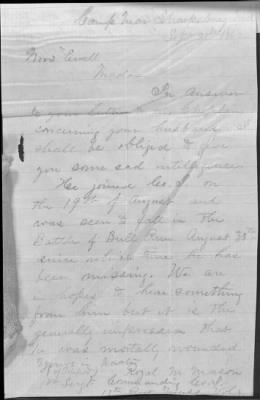 Camp Near Sharksburg
Sept 20th 1862
Mrs Ewell
Madam
In answer
to your letter
concerning your husband I
shall be obliged to give
you some sad intelligence
He joined Co. I. on
the 19th of August and
was seen to fall in the
Battle of Bull Run August 30th
since which time he has
been missing. We are
in hopes to hear something
from him but it is the
generally impression that
he was mortally wounded
Yours in haste
Royal M Mason
1st Sergt Commanding Co